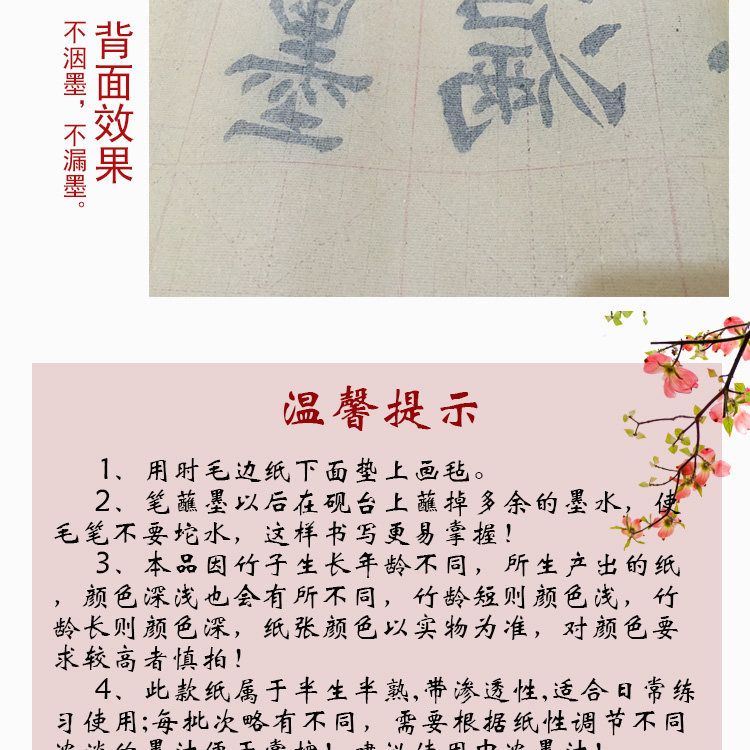 背面效果
不洇墨，不漏墨。
墨 漏
温馨提示
1、用时毛边纸下面垫上画毡。
2、笔蘸墨以后在砚台上蘸掉多余的墨水，使
毛笔不要坨水，这样书写更易掌握！
3、本品因竹子生长年龄不同，所生产出的纸
，颜色深浅也会有所不同，竹龄短则颜色浅，竹
龄长则颜色深，纸张颜色以实物为准，对颜色要
求较高者慎拍！
4、此款纸属于半生半熟,带渗透性,适合日常练
习使用;每批次略有不同，需要根据纸性调节不同